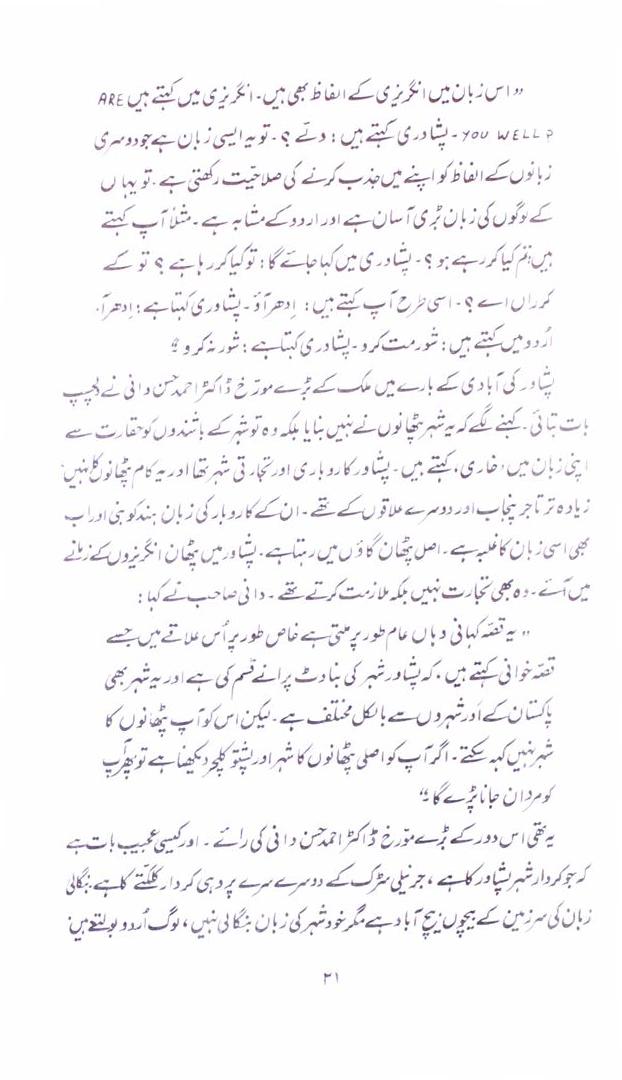 ”اس زبان میں انگریزی کے الفاظ بھی ہیں۔ انگریزی میں کہتے ہیں ARE
YOU WELL? ۔ پشاوری کہتے ہیں : دئے ؟۔ تو یہ ایسی زبان ہے جو دوسری
زبانوں کے الفاظ کو اپنے میں جذب کرنے کی صلاحیت رکھتی ہے۔ تو یہاں
کے لوگوں کی زبان بڑی آسان ہے اور اردو کے مشابہ ہے۔ مثلاً آپ کہتے
ہیں: تم کیا کر رہے ہو ؟۔ پشاوری میں کہا جائے گا: تو کیا کر رہا ہے ؟ تو کے
کر راں اے ؟۔ اسی طرح آپ کہتے ہیں : اِدھر آؤ۔ پشاوری کہتا ہے : اِدھر آ۔
اُردو میں کہتے ہیں : شور مت کرو۔ پشاوری کہتا ہے : شور نہ کرو“
پشاور کی آبادی کے بارے میں ملک کے بڑے مورّخ ڈاکٹر احمد حسن دانی نے دلچسپ
بات بتائی۔ کہنے لگے کہ یہ شہر پٹھانوں نے نہیں بنایا بلکہ وہ تو شہر کے باشندوں کو حقارت سے
اپنی زبان میں، خاری، کہتے ہیں۔ پشاور کاروباری اور تجارتی شہر تھا اور یہ کام پٹھانوں کا نہیں۔
زیادہ تر تاجر پنجاب اور دوسرے علاقوں کے تھے۔ ان کے کاروبار کی زبان ہندکو بنی اور اب
بھی اسی زبان کا غلبہ ہے۔ اصل پٹھان گاؤں میں رہتا ہے۔ پشاور میں پٹھان انگریزوں کے زمانے
میں آئے۔ وہ بھی تجارت نہیں بلکہ ملازمت کرتے تھے۔ دانی صاحب نے کہا :
”یہ قصّہ کہانی وہاں عام طور پر ملتی ہے خاص طور پر اُس علاقے میں جسے
قصّہ خوانی کہتے ہیں، کہ پشاور شہر کی بناوٹ پرانے قسم کی ہے اور یہ شہر بھی
پاکستان کے اور شہروں سے بالکل مختلف ہے۔ لیکن اس کو آپ پٹھانوں کا
شہر نہیں کہہ سکتے۔ اگر آپ کو اصلی پٹھانوں کا شہر اور پشتو کلچر دیکھنا ہے تو پھر آپ
کو مردان جانا پڑے گا“
یہ تھی اس دور کے بڑے مورّخ ڈاکٹر احمد حسن دانی کی رائے۔ اور کیسی عجیب بات ہے
کہ جو کردار شہر پشاور کا ہے، جرنیلی سڑک کے دوسرے سرے پر وہی کردار کلکتّے کا ہے۔ بنگالی
زبان کی سرزمین کے بیچوں بیچ آباد ہے مگر خود شہر کی زبان بنگالی نہیں، لوگ اُردو بولتے ہیں۔
۲۱